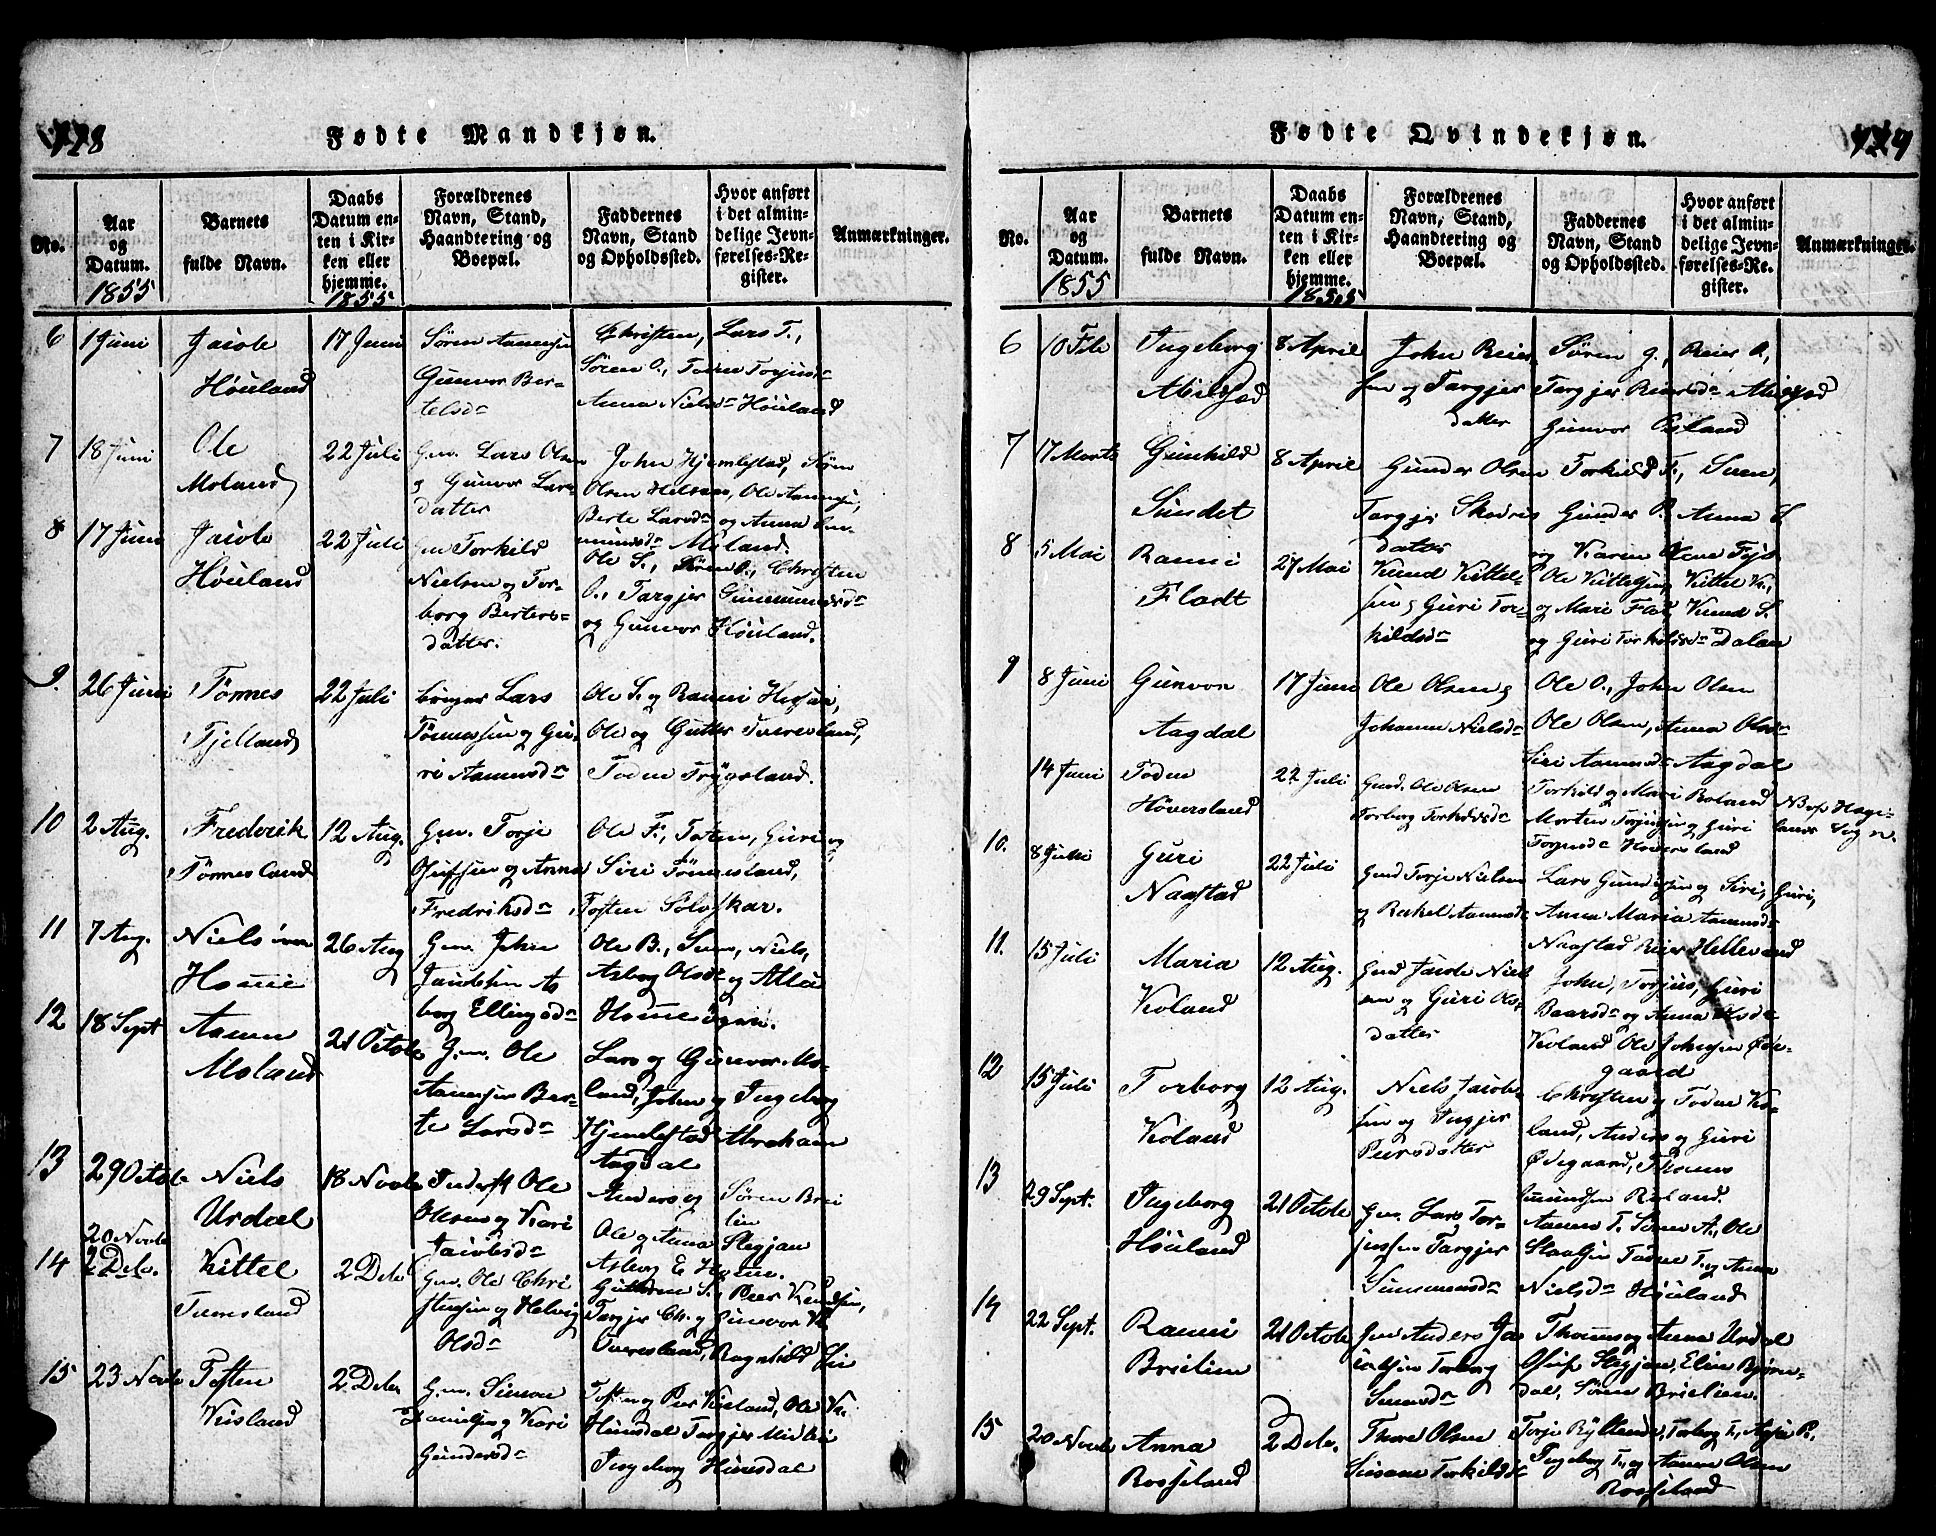 118
Fødte Mandkjøn.
No.
Aar
og
Datum.
1855
Barnets
fulde Navn.
Daabs
Datum en-
ten i Kir-
ken eller
hjemme.
1855
Forældrenes
Navn, Stand,
Haandtering og
Boepæl.
Faddernes
Navn, Stand
og Opholdssted.
Hvor anført
i det almin-
delige Jevn-
førelses-Re-
gister.
Anmærkninger.
6
1 Juni
Jacob
Høuland
17 Juni
Søren Aanensen
Gunvor Ber-
telsdr
Christen, Lars T.,
Søren O., Toden Torjusdr
Anna Nielsdr Høuland
7
18 Juni
Ole
Moland
22 Juli
Gm. Lars Olsen
og Gunvor Lars-
datter
John Hjemlestad, Søren
Olsen, Ole Aanensen,
Berte Larsdr og Anna
Moland.
8
17 Juni
Jacob
Høuland
22 Juli
Gm Torkild
Nielsen og Tor-
borg Berters-
datter.
Ole S., Søren O., Christen
O., Targjer Gunmundsdr
og Gunvor Høuland.
9.
26 Juni
Tønnes
Fjelland
22 Juli
Lars
Tønnessen og Gu-
ri Aanensdr
Ole S. og Ranni
Ole og Guttorm Tveresland,
Toden Trygsland.
10
2 Aug.
Frederik
Tønnesland
12 Aug.
Gm. Torje
Osufsen og Anna
Fredriksdr
Ole F., Tosten, Guri og
Siri Tønnesland,
Tosten Sølvskar.
11
7 Aug.
Niels
Homme
26 Aug
Gm. John
As
borg Ellingsdr
Ole B., Niels,
Asborg Olsdr og
Homme
12
18 Sept
Aanen
Moland
21 Octob
Gm. Ole
Aanensen Ber-
te Larsdr
Lars og Gunvor Mo-
land, John og Ingeborg
Hjemlestad Abraham
Aagdal
13
29 Octob
Niels
Urdal
18 Novb
Inderst Ole
Olsen og Kari
Jacobsdr
Anders og Søren Brei
lien
Ole og Anna Slegjan
Asborg E Homme.
14
20 Novb
2 Deb.
Kittel
Tveresland
2 Deb
Gm. Ole Chri
stensen og Helvig
Olsdr
Guttorm S., Peer Knudsen,
Targjer Ch. og Gunvor K
Overesland, Ragnhild Lie
15
23 Novb
Tosten
Kvisland
2. Deb
Gm. Simon
Danielsen og Kari
Gundersdr
Tosten og Peer Kvisland, Ole K.
Hunsdal Targjer Midbø
Ingeborg Hunsdal
119
Fødte Qvindekjøn.
No.
Aar
og
Datum.
1855
Barnets
fulde Navn.
Daabs
Datum en-
ten i Kir-
ken eller
hjemme.
1855
Forældrenes
Navn, Stand,
Haandtering og
Boepæl.
Faddernes
Navn, Stand
og Opholdssted.
Hvor anført
i det almin-
delige Jevn-
førelses-Re-
gister.
Anmærkninger.
6
10 Feb
Ingeborg
Abildsød
8 April
John Reier
sen og Targjer
datter
Søren G., Reier O,
Targjer Reiersdr Abildsød
Gunvor Øysland
7
17 Marts
Gunhild
Sundet
8 April
Gunder Olsen
Targjer
datter
Torkild T., Sven,
Gunder P. Anna S
og Karen
8
5 Mai
Ranni
Flodt
27 Mai
Knud Kittel-
sen og Guri Tor-
kildsdr
Ole Kittelsen, Kittel K.,
og Mari Flot, Knud S.
og Guri Torkildsdr Dalan
9
8 Juni
Gunvor
Aagdal
17 Juni
Ole Olsen og
Johanne Nielsdr
Ole O., John Olsen
Ole Olsen, Anna Olsdr
Siri Aanensdr Aagdal
14 Juni
Toden
Høversland
22 Juli
Gmd. Ole Olsen
Torborg Torkildsdr
Torkild og Mari Roland
Morten Torjussen og Guri
Torjusdr Høversland
NB af Hæge-
lands Sogn.
10.
8 Juli
Guri
Naastad
22 Juli
Gmd Torje Nielsen
og Rakel Aanensdr
Lars Gundersen og Siri, Guri,
Anna Maria Aanensdr
Naastad Reier Helleland
11.
15 Juli
Maria
Koland
12 Aug.
Gmd Jacob Niel
sen og Guri Ols-
datter
John, Torjus, Guri
Baarsdr og Anna Olsdr
Koland Ole Johnsen Øde-
gaard
12
15 Juli
Torborg
Koland
12 Aug.
Niels Jacob-
sen og Ingjer
Peersdatter
Christen og Todne Ko-
land, Anders og Guri
Ødegaard, Thomas
Amundsen Risland.
13
29 Sept.
Ingeborg
Høuland
21 Octob
Gm. Lars Tor-
jussen Targjer
Gunmundsdr
Aanen T. Søren A., Ole
Todne T. og Anna
Nielsdr Høuland
14
22 Sept.
Ranni
Breilien
21 Octob
Gm Anders Ja-
cobsen Torborg
Svensdr
Thomas og Anna Urdal
Osuf Slegjan, Elen Bjørn-
dal, Søren Breilien.
15
20 Novb
Anna
Rosseland
2 Deb.
Thore Olsen
Susanne Torkildsdr
Torje Rylland, Torborg T., Aasne P.
Ingeborg T. og Aanen Olsen
Rosseland